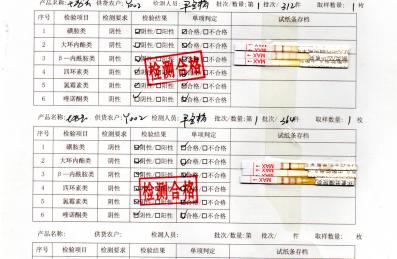 产品名称: 供货农户: Y002 检测人员: 批次/数量: 第 1 批次/ 312 件 取样数量: 1 枚
序号 检验项目 检测要求 检验结果 单项判定 试纸条存档
1 磺胺类 阴性 ☑阴性/☐阳性 ☑合格/☐不合格
2 大环内酯类 阴性 ☑阴性/☐阳性 ☑合格/☐不合格
3 β一内酰胺类 阴性 ☑阴性/☐阳性 ☑合格/☐不合格
4 四环素类 阴性 ☑阴性/☐阳性 ☑合格/☐不合格
5 氯霉素类 阴性 ☑阴性/☐阳性 ☑合格/☐不合格
6 喹诺酮类 阴性 ☑阴性/☐阳性 ☑合格/☐不合格
检测合格
MAX
MAX
产品名称: 供货农户: Y002 检测人员: 批次/数量: 第 1 批次/ 360 件 取样数量: 1 枚
序号 检验项目 检测要求 检验结果 单项判定 试纸条存档
1 磺胺类 阴性 ☑阴性/☐阳性 ☑合格/☐不合格
2 大环内酯类 阴性 ☑阴性/☐阳性 ☑合格/☐不合格
3 β一内酰胺类 阴性 ☑阴性/☐阳性 ☑合格/☐不合格
4 四环素类 阴性 ☑阴性/☐阳性 ☑合格/☐不合格
5 氯霉素类 阴性 ☑阴性/☐阳性 ☑合格/☐不合格
6 喹诺酮类 阴性 ☑阴性/☐阳性 ☑合格/☐不合格
检测合格
MAX
MAX
MAX
产品名称: 供货农户: 检测人员: 批次/数量: 第 批次/ 件 取样数量: 枚
序号 检验项目 检测要求 检验结果 单项判定 试纸条存档